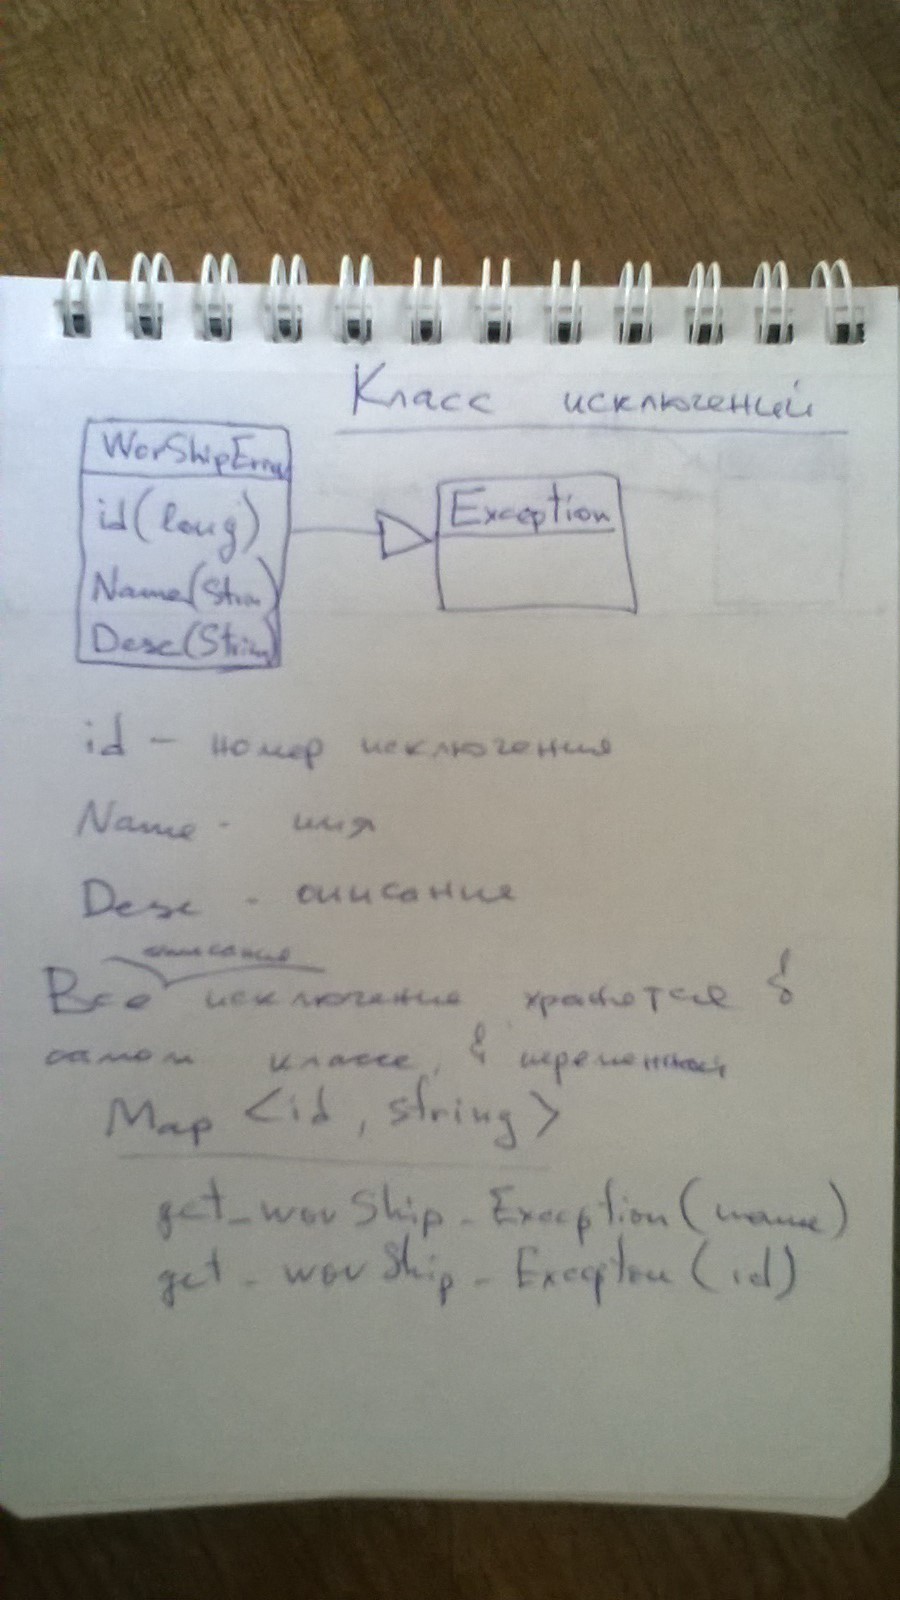 Класс исключений
WorShipError
id(long)
Name(Strin)
Desc(String)
Exception
id - номер исключения
Name - имя
Desc - описание
описания
Все исключение хранются в
самом классе, в переменной
Map <id, string>
get_worShip_Exception(name)
get_worShip_Excepton(id)